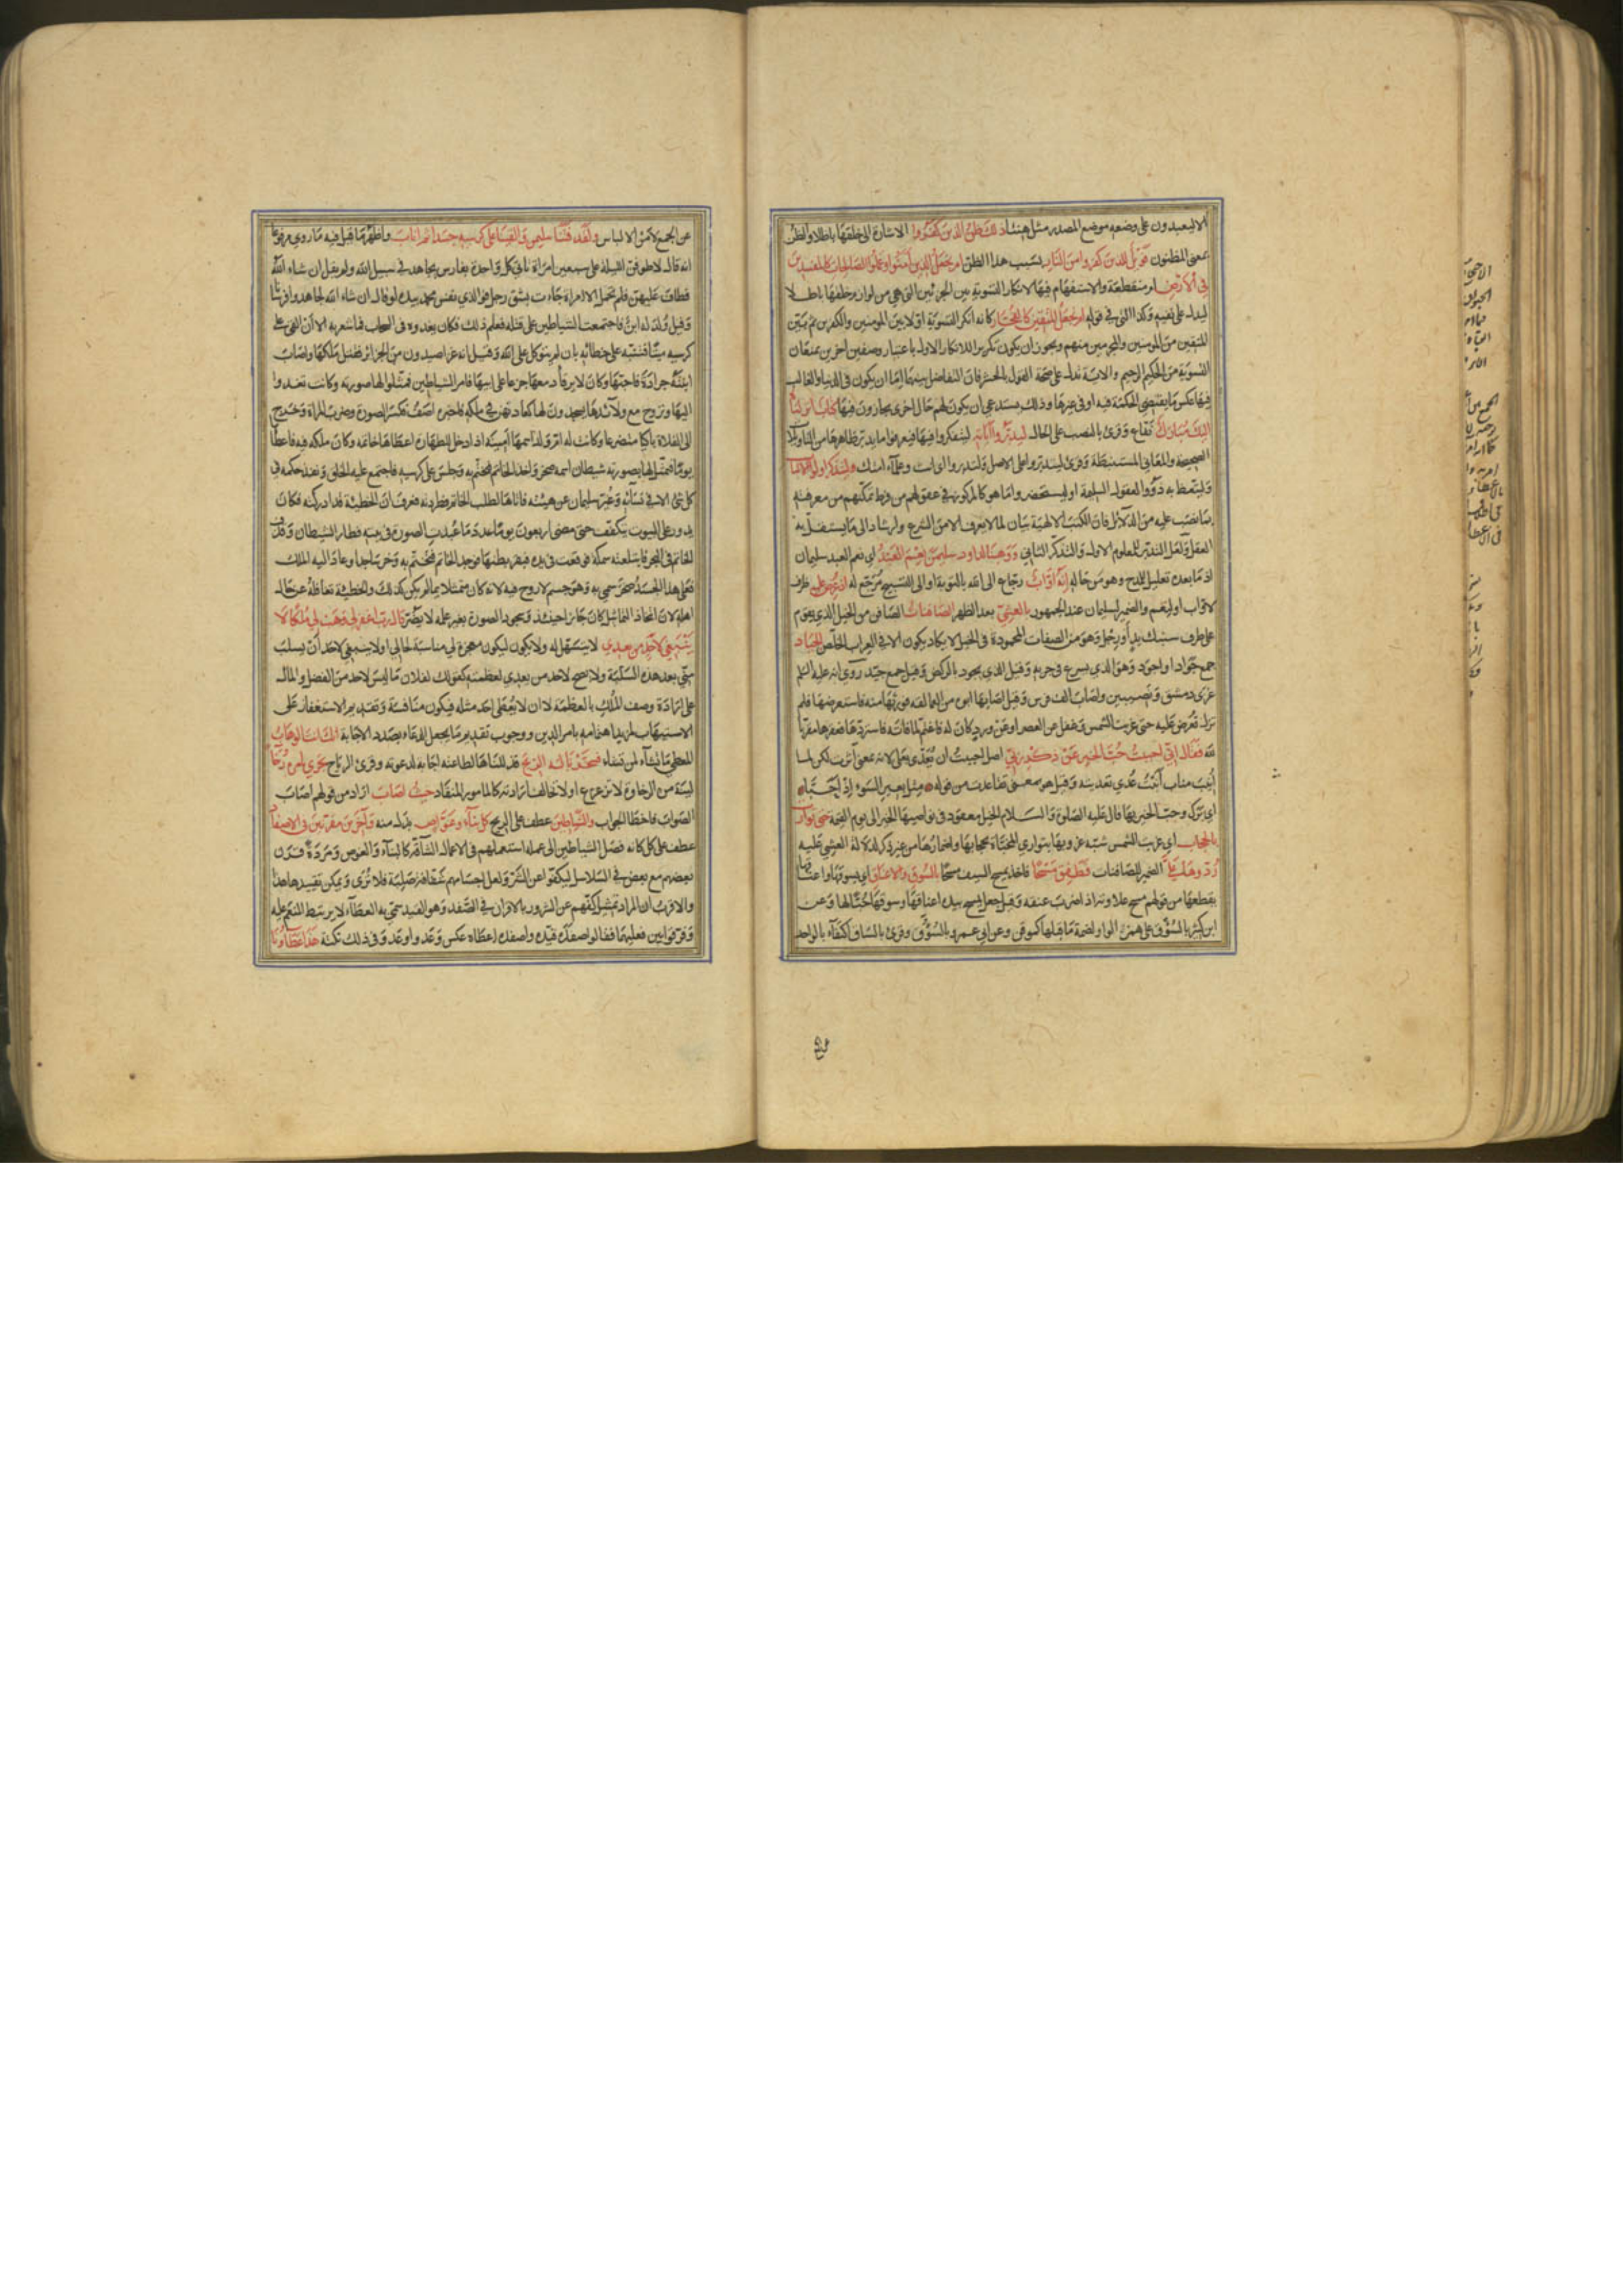 الا ليعبدون على وضعه موضع المصدر مثل هنيئا ذلك ظن الذين كفروا الاشارة الى خلقها باطلا والظن
بمعنى المظنون فويل للذين كفروا من النار بسبب هذا الظن ام نجعل الذين آمنوا وعملوا الصالحات كالمفسدين
في الأرض ام منقطعة والاستفهام فيها لانكار التسوية بين الحزبين التي هي من لوازم خلقها باطلا
ليدل على نفيه وكذا التي في قوله ام نجعل المتقين كالفجار كانه انكر التسوية اولا بين المؤمنين والكافرين ثم بين
المتقين من المؤمنين والمجرمين منهم ويجوز ان يكون تكريرا للانكار الاول باعتبار وصفين اخرين يمنعان
التسوية من الحكيم الرحيم والآية تدل على صحة القول بالحشر فان التفاضل بينهما اما ان يكون في الدنيا والغالب
فيها عكس ما يقتضي الحكمة فيه او في غيرها وذلك يستدعي ان يكون لهم حال اخرى يجازون فيها كتاب انزلناه
اليك مبارك نفاع وقرئ بالنصب على الحال ليدبروا آياته ليتفكروا فيها فيعرفوا ما يدبر ظاهرها من التاويلا
الصحيحة والمعاني المستنبطة وقرئ ليتدبروا على الاصل ولتدبروا اي انت وعلماء امتك وليتذكر اولوا الالباب
وليتعظ به ذووا العقول السليمة او ليستحضروا ما هو كالمركوز في عقولهم من فرط تمكنهم من معرفته
بما نصب عليه من الدلائل فان الكتب الالهية بيان لما لا يعرف الا من الشرع وارشاد الى ما يستقل به
العقل ولعل التدبر للمعلوم الاول والتذكر الثاني ووهبنا لداود سليمن نعم العبد اي نعم العبد سليمان
اذ ما بعده تعليل للمدح وهو من حاله إنه أواب رجاع الى الله بالتوبة او الى التسبيح مرجع له اذ عرض عليه ظرف
لاواب او لنعم والضمير لسليمان عند الجمهور بالعشي بعد الظهر الصافنات الصافن من الخيل الذي يقوم
على طرف سنبك يد أو رجل وهو من الصفات المحمودة في الخيل لا يكاد يكون الا في العراب الخلص الجياد
جمع جواد او جود وهو الذي يسرع في جريه وقيل الذي يجود بالركض وقيل جمع جيد روي انه عليه السلم
غزى دمشق ونصيبين واصاب الف فرس وقيل اصابها ابوه من العمالقة فورثها منه فاستعرضها فلم
تزل تعرض عليه حتى غربت الشمس وغفل عن العصر او عن ورد كان له فاغتم لما فاته فاستردها فعقرها مقربا
لله فقال إني أحببت حب الخير عن ذكر ربي اصل احببت ان يعدى بعلى لانه بمعنى آثرت لكن لما
أنيب مناب أنبت عدي تعديته وقيل هو بمعنى تقاعدت من قوله مثل بعير السوء إذ أحبا
اي برك وحب الخير بها قال عليه الصلوة والسلام الخيل معقود في نواصيها الخير الى يوم القيمة حتى توارت
بالحجاب اي غربت الشمس شبه غروبها بتواري المخباة بحجابها واضمارها من غير ذكر لدلالة العشي عليه
ردوها علي الضمير للصافنات فطفق مسحا فاخذ يمسح السيف مسحا بالسوق والاعناق اي بسوقها واعناقها
يقطعها من قولهم مسح علاوته اذا ضرب عنقه وقيل جعل يمسح بيده اعناقها وسوقها حبا لها وعن
ابن كثير بالسؤق على همز الواو لضمة ما قبلها كموقن وعن ابي عمرو بالسؤوق وقرئ بالساق اكتفاء بالواحد
عن الجمع لأمن الالباس ولقد فتنا سليمن وألقينا على كرسيه جسدا ثم اناب واظهر ما قيل فيه ما روي مرفوعا
انه قال لاطوفن الليلة على سبعين امراة تاتي كل واحدة بفارس يجاهد في سبيل الله ولم يقل ان شاء الله
فطاف عليهن فلم تحمل الا امراة جاءت بشق رجل فو الذي نفس محمد بيده لو قال ان شاء الله لجاهدوا فرسانا
وقيل ولد له ابن فاجتمعت الشياطين على قتله فعلم ذلك فكان يغدوه في السحاب فما شعر به الا ان القي على
كرسيه ميتا فتنبه على خطائه بان لم يتوكل على الله وقيل انه غزا صيدون من الجزائر فقتل ملكها واصاب
ابنته جرادة فاحبها وكان لا يرقأ دمعها جزعا على ابيها فامر الشياطين فمثلوا لها صورته وكانت تغدوا
اليها وتروح مع ولائدها يسجدون لها كعادتهن في ملكه فاخبره اصف فكسر الصورة وضرب المراة وخرج
الى الفلاة باكيا متضرعا وكانت له ام ولد اسمها امينة اذا دخل للطهارة اعطاها خاتمه وكان ملكه فيه فاعطاها
يوما فتمثل لها بصورته شيطان اسمه صخر واخذ الخاتم فتختم به وجلس على كرسيه فاجتمع عليه الخلق ونفذ حكمه في
كل شئ الا في نسائه وغير سليمان عن هيئته فاتاها لطلب الخاتم فطردته فعرف ان الخطيئة قد ادركته فكان
يدور على البيوت يتكفف حتى مضى اربعون يوما عدد ما عبدت الصورة في بيته فطار الشيطان وقذف
الخاتم في البحر فابتلعته سمكة فوقعت في يده فبقر بطنها فوجد الخاتم فتختم به وخر ساجدا وعاد اليه الملك
فعلى هذا الجسد صخر سمي به وهو جسم لا روح فيه لانه كان متمثلا بما لم يكن كذلك والخطيئة تغافله عن حال
اهله لان اتخاذ التماثيل كان جائزا حينئذ وسجود الصورة بغير علمه لا يضر قال رب اغفر لي وهب لي ملكا لا
ينبغي لأحد من بعدي لا يتسهل له ولا يكون ليكون معجزة لي مناسبة لحالي او لا ينبغي لاحد أن يسلبه
مني بعد هذه السلبة ولا يصح لاحد من بعدي لعظمته كقولك لفلان ما ليس لاحد من الفضل والمال
على ارادة وصف الملك بالعظمة لا ان لا يعطى احد مثله فيكون منافسة وتقديم الاستغفار على
الاستيهاب لمزيد اهتمامه بامر الدين ووجوب تقديم ما يجعل الدعاء بصدد الاجابة انك انت الوهاب
المعطي ما تشاء لمن تشاء فسخرنا له الريح فذللناها لطاعته اجابة لدعوته وقرئ الرياح تجري بامره رخاء
لينة من الرخاوة لا تزعزع او لا تخالف ارادته كالمامور المنقاد حيث اصاب اراد من قولهم اصاب
الصواب فاخطا الجواب والشياطين عطف على الريح كل بناء وغواص بدل منه وآخرين مقرنين في الاصفاد
عطف على كل كانه فصل الشياطين الى عملة استعملهم في الاعمال الشاقة كالبناء والغوص ومردة قرن
بعضهم مع بعض في السلاسل ليكفوا عن الشر ولعل اجسامهم شفافة صلبة فلا ترى ويمكن تقييدها هذا
والاقرب ان المراد تمثيل كفهم عن الشرور بالاقران في الصفد وهو القيد سمي به العطاء لانه يرتبط المنعم عليه
وفرقوا بين فعليهما فقالوا صفده قيده واصفده اعطاه عكس وعد واوعد وفي ذلك نكتة هذا عطاؤنا